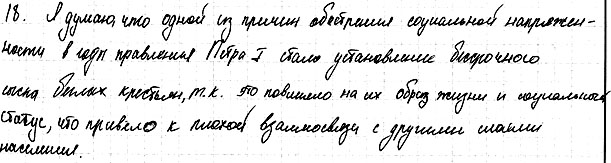 18. Я думаю, что одной из причин обострения социальной напряжен-
ности в годы правления Петра I стало установление бессрочного
сыска беглых крестьян, т.к. это повлияло на их образ жизни и социальный
статус, что привело к плохой взаимосвязи с другими слоями
населения.